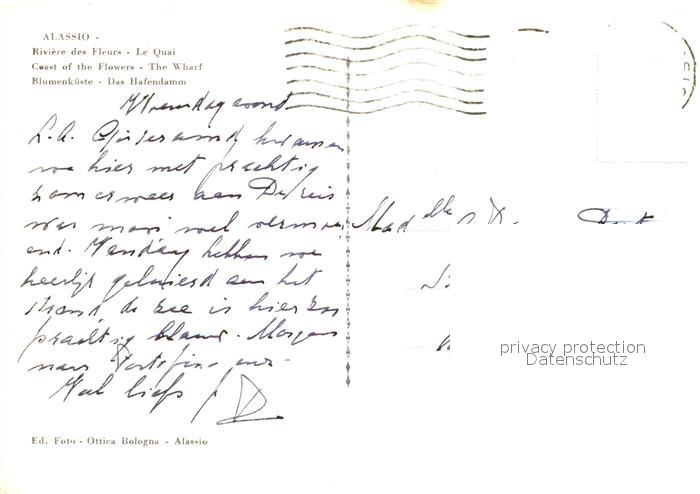 ALASSIO -
Rivière des Fleurs - Le Quai
Coast of the Flowers - The Wharf
Blumenküste - Das Hafendamm
avond
L.A. Gisteravond kwamen
we hier met prachtig
zomerweer aan De reis
was mooi wel vermoei
end. Vandaag hebben we
heerlijk geluierd aan het
strand de zee is hier zoo
prachtig blauw. Morgen
naar Portofino
Veel liefs
privacy protection
Datenschutz
Ed. Foto - Ottica Bologna - Alassio